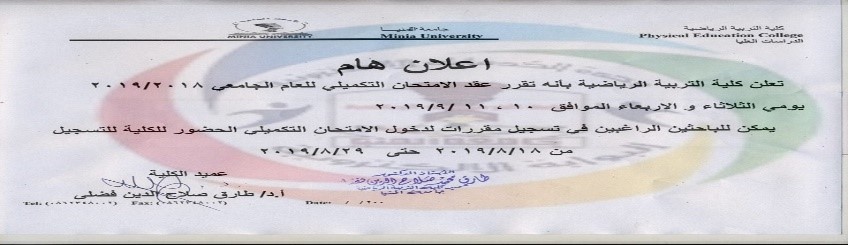 كلية التربية الرياضية
Physical Education College
الدراسات العليا
جامعة المنيا
Minia University
MINIA UNIVERSITY
اعلان هام
تعلن كلية التربية الرياضية بأنه تقرر عقد الامتحان التكميلي للعام الجامعي ٢٠١٩/٢٠١٨
يومي الثلاثاء و الاربعاء الموافق ١٠ ، ١١ /٢٠١٩/٩
يمكن للباحثين الراغبين في تسجيل مقررات لدخول الامتحان التكميلي الحضور للكلية للتسجيل
من ٢٠١٩/٨/١٨ حتى ٢٠١٩/٨/٢٩
عميد الكلية
أ.د/ طارق صلاح الدين فضلى
Tel: Fax: Date: / /٢٠٠